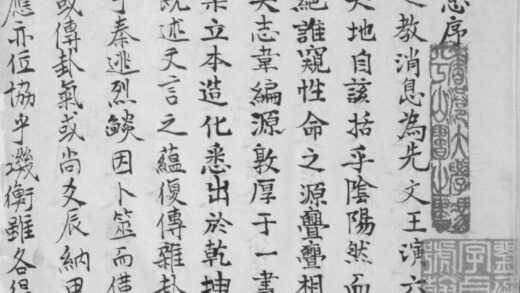 息序
之教消息為先文王演六
天地自該括乎陰陽然而
絕誰窺性命之源亹亹相
志韋編源敦厚于一書
柔立本造化悉出於乾坤
既述文言之蘊復傳雜卦
秦逃烈燄因卜筮而僅
或傳卦氣或尚爻辰納甲
應亦位協乎璣衡雖各得